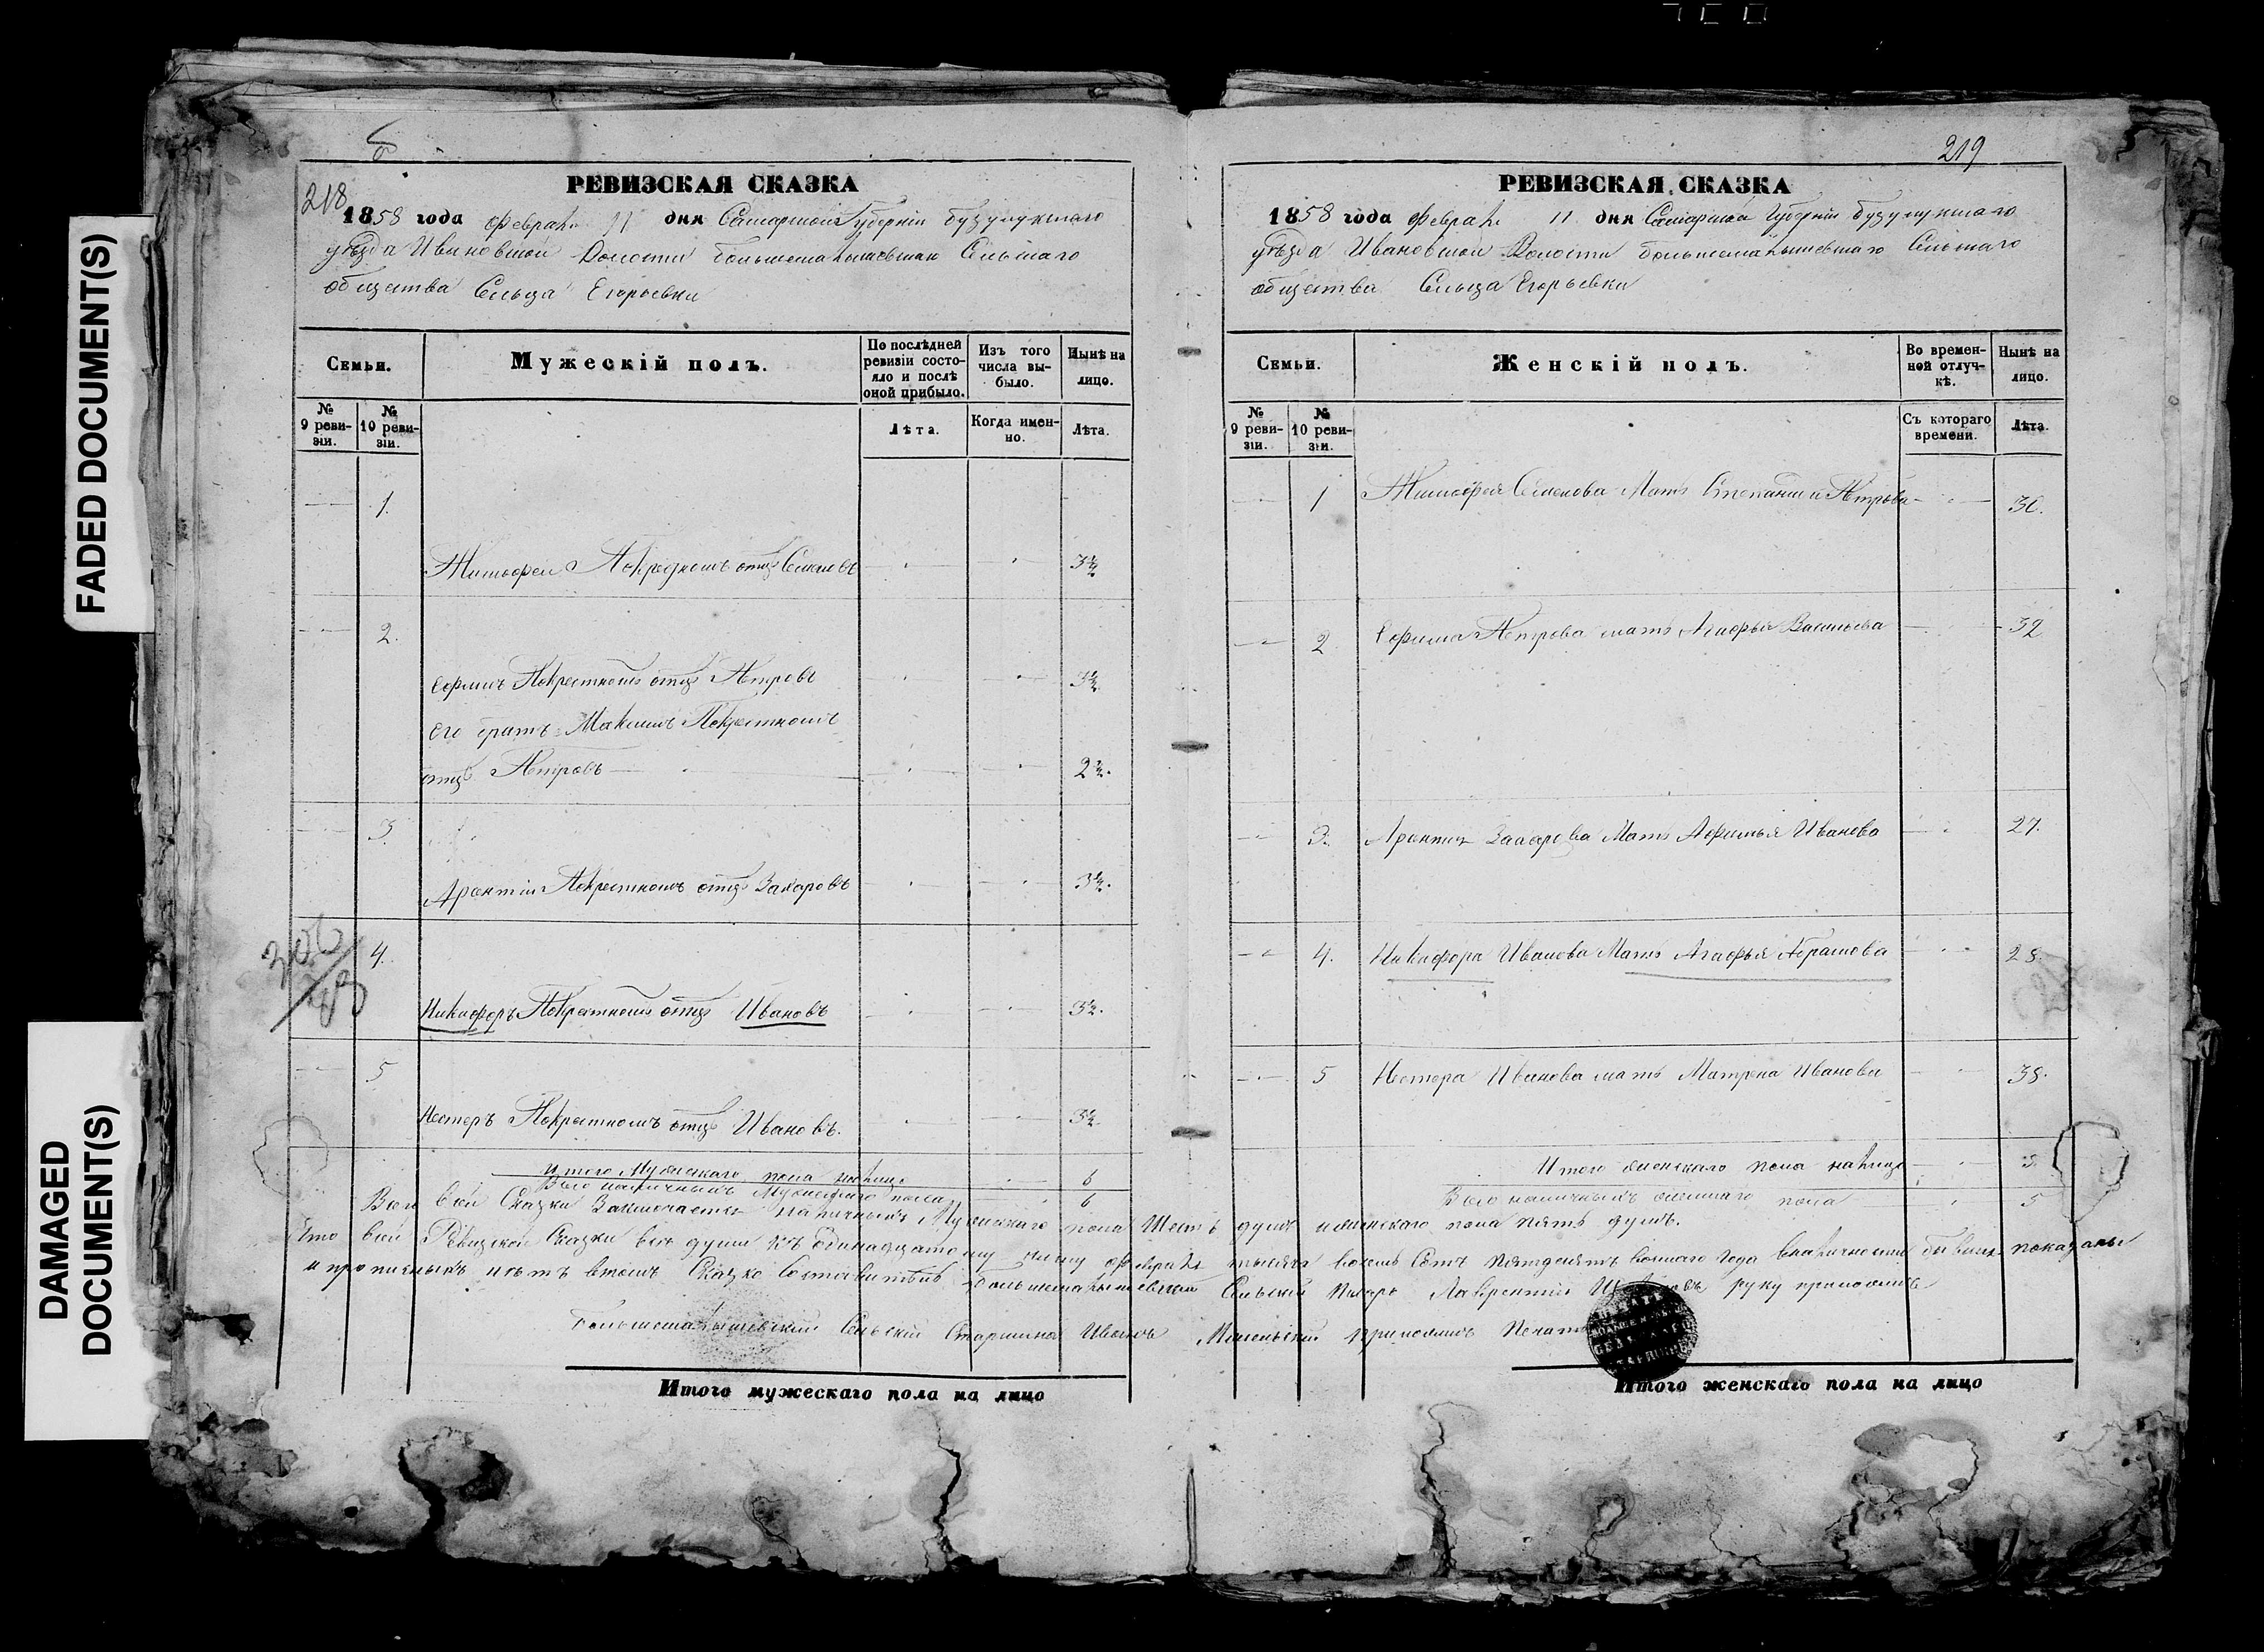 FADED DOCUMENT(S)
DAMAGED
DOCUMENT(S)
218
РЕВИЗСКАЯ СКАЗКА
1858 года февраля 11 дня Самарской Губерніи бузулукскаго
уѣзда Ивановской Волости большемалышевскаго Сельскаго
общества Сельца Егорьевки
Семьи.
Мужескій полъ.
По послѣдней ревизіи состояло и послѣ оной прибыло.
Изъ того числа выбыло.
Нынѣ на лицо.
№ 9 ревизіи.
№ 10 ревизіи.
Лѣта.
Когда именно.
Лѣта.
1.
Тимофей Покрестномъ отцѣ Семеновъ 3½
2.
Ефимъ Покрестномъ отцѣ Петровъ 3½
Его братъ Максимъ Покрестномъ
отцѣ Петровъ 2½.
3.
Арентій Покрестномъ отцѣ Захаровъ 3½.
4.
Никифоръ Покрестномъ отцѣ Ивановъ 3½.
5
Нестеръ Покрестномъ отцѣ Ивановъ. 3½
Итого Мужескаго пола налицо 6
Всего наличныхъ Мужескаго пола 6
219
РЕВИЗСКАЯ СКАЗКА
1858 года февраля 11 дня Самарской Губерніи бузулукскаго
уѣзда Ивановской Волости большемалышевскаго Сельскаго
общества Сельца Егорьевки
Семьи.
Женскій полъ.
Во временной отлучкѣ.
Нынѣ на лицо.
№ 9 ревизіи.
№ 10 ревизіи.
Съ котораго времени.
Лѣта.
1 Тимофея Семенова Мать Петрова 36.
2 Ефима Петрова мать Агафья Васильева 32
3. Арентія Захарова Мать Афимья Иванова 27.
4. Никифора Иванова Мать Агафья Абрамова 28.
5 Нестера Иванова мать Матрена Иванова 38.
Итого женскаго пола налицо 5.
Всего наличныхъ женскаго пола 5
Всей Сказки Заключается наличныхъ Мужескаго пола Шесть душъ и женскаго пола пять душъ.
Что всей Ревизской Сказки всѣ души къ одинадцатому числу февраля тысяча восемь Сотъ пятдесятъ восмаго года вналичности бывшія показаны
и прописныхъ нѣтъ втомъ Сказко Составитель большемалышевской Сельскій Писарь Лаврентій руку приложилъ
Большемалышевскій Сельскій Старшина Иванъ приложилъ Печать
Итого мужескаго пола на лицо
Итого женскаго пола на лицо